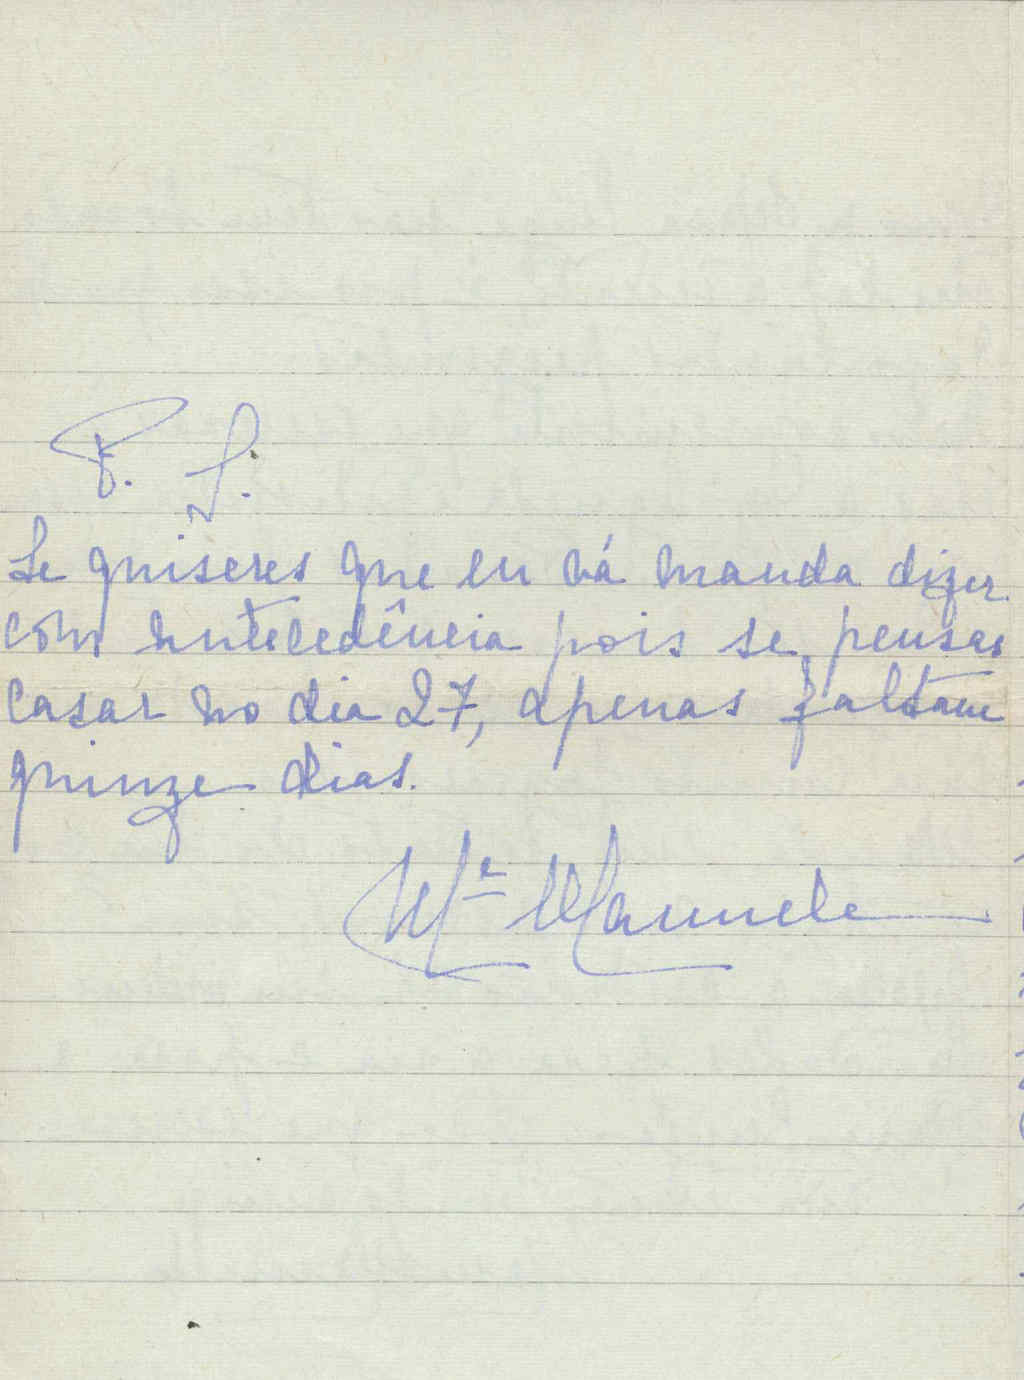 P. S.
Se quiseres que eu vá manda dizer
com antecedência pois se pensas
casar no dia 27, apenas faltam
quinze dias.
Mª Manuela